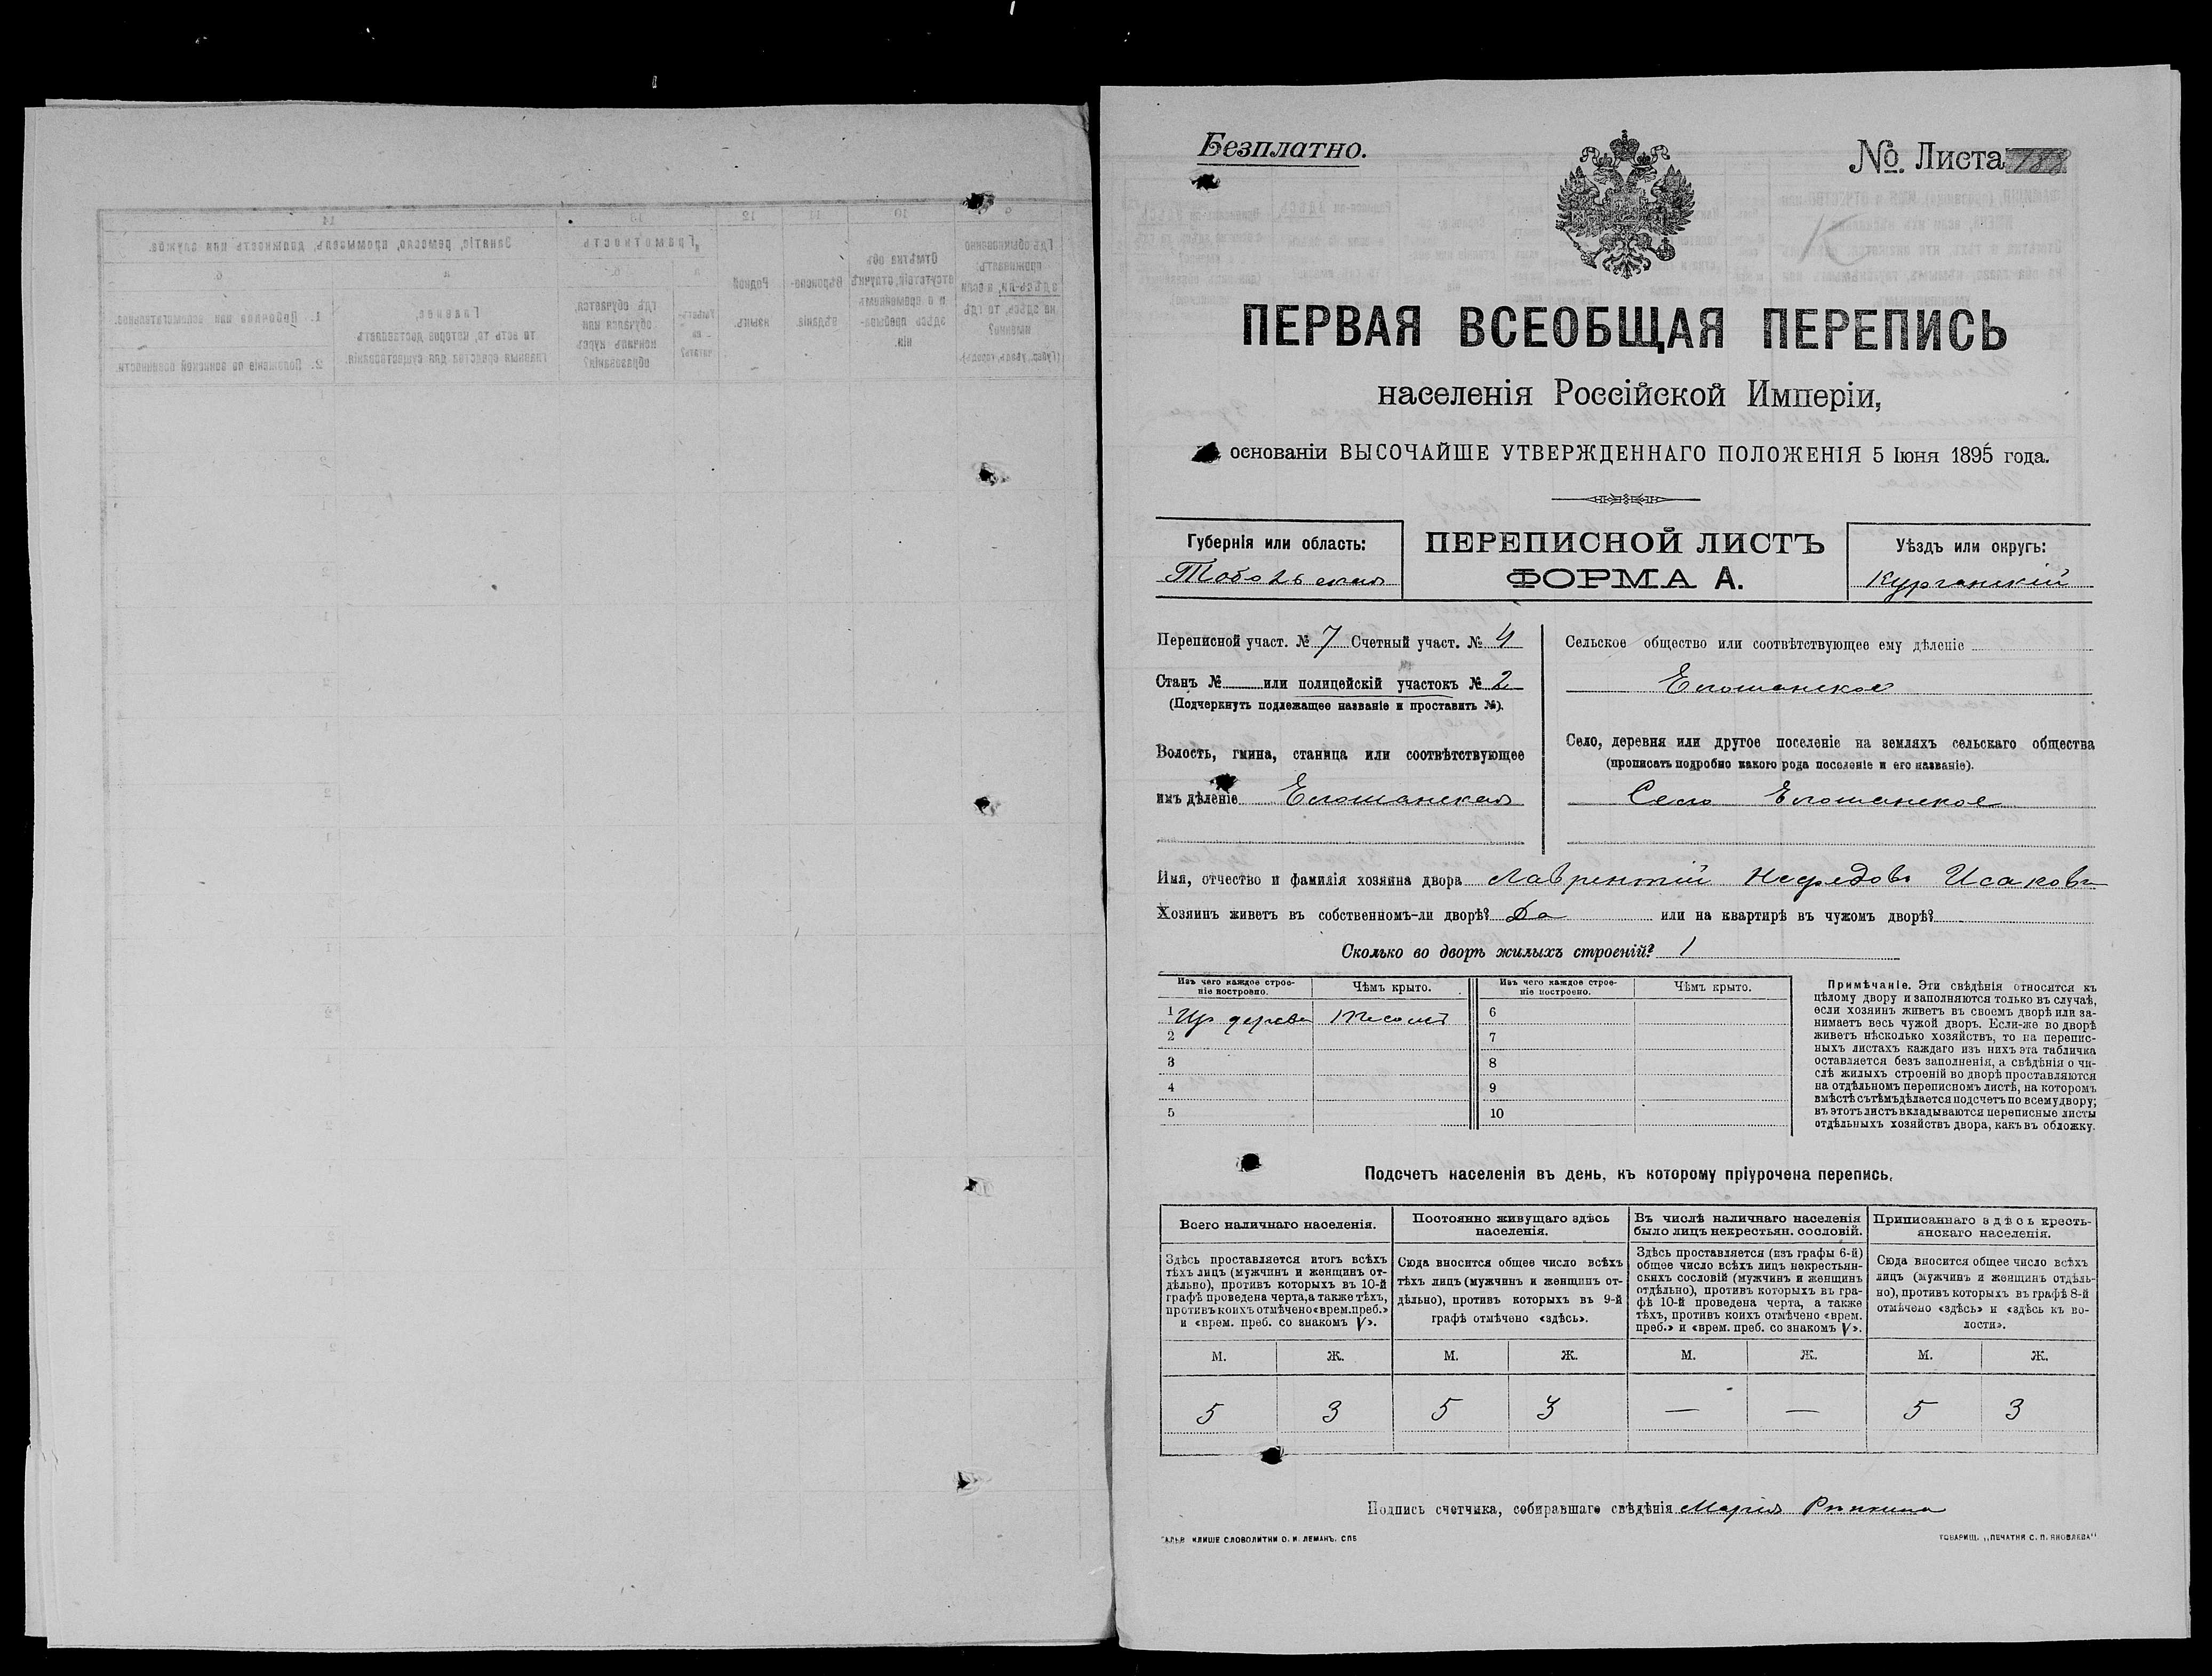 Безплатно.
№. Листа 188
ПЕРВАЯ ВСЕОБЩАЯ ПЕРЕПИСЬ
населенія Россійской Имперіи,
основаніи ВЫСОЧАЙШЕ УТВЕРЖДЕННАГО ПОЛОЖЕНІЯ 5 Іюня 1895 года.
Губернія или область:
Тобольская
ПЕРЕПИСНОЙ ЛИСТЪ
ФОРМА А.
Уѣздъ или округъ:
Курганскій
Переписной участ. № 7 Счетный участ. № 4
Станъ № или полицейскій участокъ № 2
(Подчеркнуть подлежащее названіе и проставить №).
Волость, гмина, станица или соотвѣтствующее
имъ дѣленіе Елошанская
Сельское общество или соотвѣтствующее ему дѣленіе
Елошанское
Село, деревня или другое поселеніе на земляхъ сельскаго общества
(прописать подробно какого рода поселеніе и его названіе).
Село Елошанское
Имя, отчество и фамилія хозяина двора Лаврентій Нефедовъ Исаковъ
Хозяинъ живетъ въ собственномъ-ли дворѣ? Да или на квартирѣ въ чужомъ дворѣ?
Сколько во дворѣ жилыхъ строеній? 1
Изъ чего каждое строе-
ніе построено.
Чѣмъ крыто.
Изъ чего каждое строе-
ніе построено.
Чѣмъ крыто.
1 Изъ дерева Тесомъ
2
3
4
5
6
7
8
9
10
Примѣчаніе. Эти свѣдѣнія относятся къ
цѣлому двору и заполняются только въ случаѣ,
если хозяинъ живетъ въ своемъ дворѣ или за-
нимаетъ весь чужой дворъ. Если-же во дворѣ
живетъ нѣсколько хозяйствъ, то на перепис-
ныхъ листахъ каждаго изъ нихъ эта табличка
оставляется безъ заполненія, а свѣдѣнія о чи-
слѣ жилыхъ строеній во дворѣ проставляются
на отдѣльномъ переписномъ листѣ, на которомъ
вмѣстѣ съ тѣмъ дѣлается подсчетъ по всему двору;
въ этотъ листъ вкладываются переписные листы
отдѣльныхъ хозяйствъ двора, какъ въ обложку.
Подсчетъ населенія въ день, къ которому пріурочена перепись.
Всего наличнаго населенія.
Здѣсь проставляется итогъ всѣхъ
тѣхъ лицъ (мужчинъ и женщинъ от-
дѣльно), противъ которыхъ въ 10-й
графѣ проведена черта, а также тѣхъ,
противъ коихъ отмѣчено «врем. преб.»
и «врем. преб. со знакомъ V».
Постоянно живущаго здѣсь
населенія.
Сюда вносится общее число всѣхъ
тѣхъ лицъ (мужчинъ и женщинъ от-
дѣльно), противъ которыхъ въ 9-й
графѣ отмѣчено «здѣсь».
Въ числѣ наличнаго населенія
было лицъ некрестьян. сословій.
Здѣсь проставляется (изъ графы 6-й)
общее число всѣхъ лицъ некрестьян-
скихъ сословій (мужчинъ и женщинъ
отдѣльно), противъ которыхъ въ гра-
фѣ 10-й проведена черта, а также
тѣхъ, противъ коихъ отмѣчено «врем.
преб.» и «врем. преб. со знакомъ V».
Приписаннаго здѣсь кресть-
янскаго населенія.
Сюда вносится общее число всѣхъ
лицъ (мужчинъ и женщинъ отдѣль-
но), противъ которыхъ въ графѣ 8-й
отмѣчено «здѣсь» и «здѣсь къ во-
лости».
М. Ж. М. Ж. М. Ж. М. Ж.
5 3 5 3 — — 5 3
Подпись счетчика, собиравшаго свѣдѣнія Марія
КЛИШЕ СЛОВОЛИТНИ О. И. ЛЕМАНЪ. СПБ
ТОВАРИЩ. „ПЕЧАТНЯ С. П. ЯКОВЛЕВА"